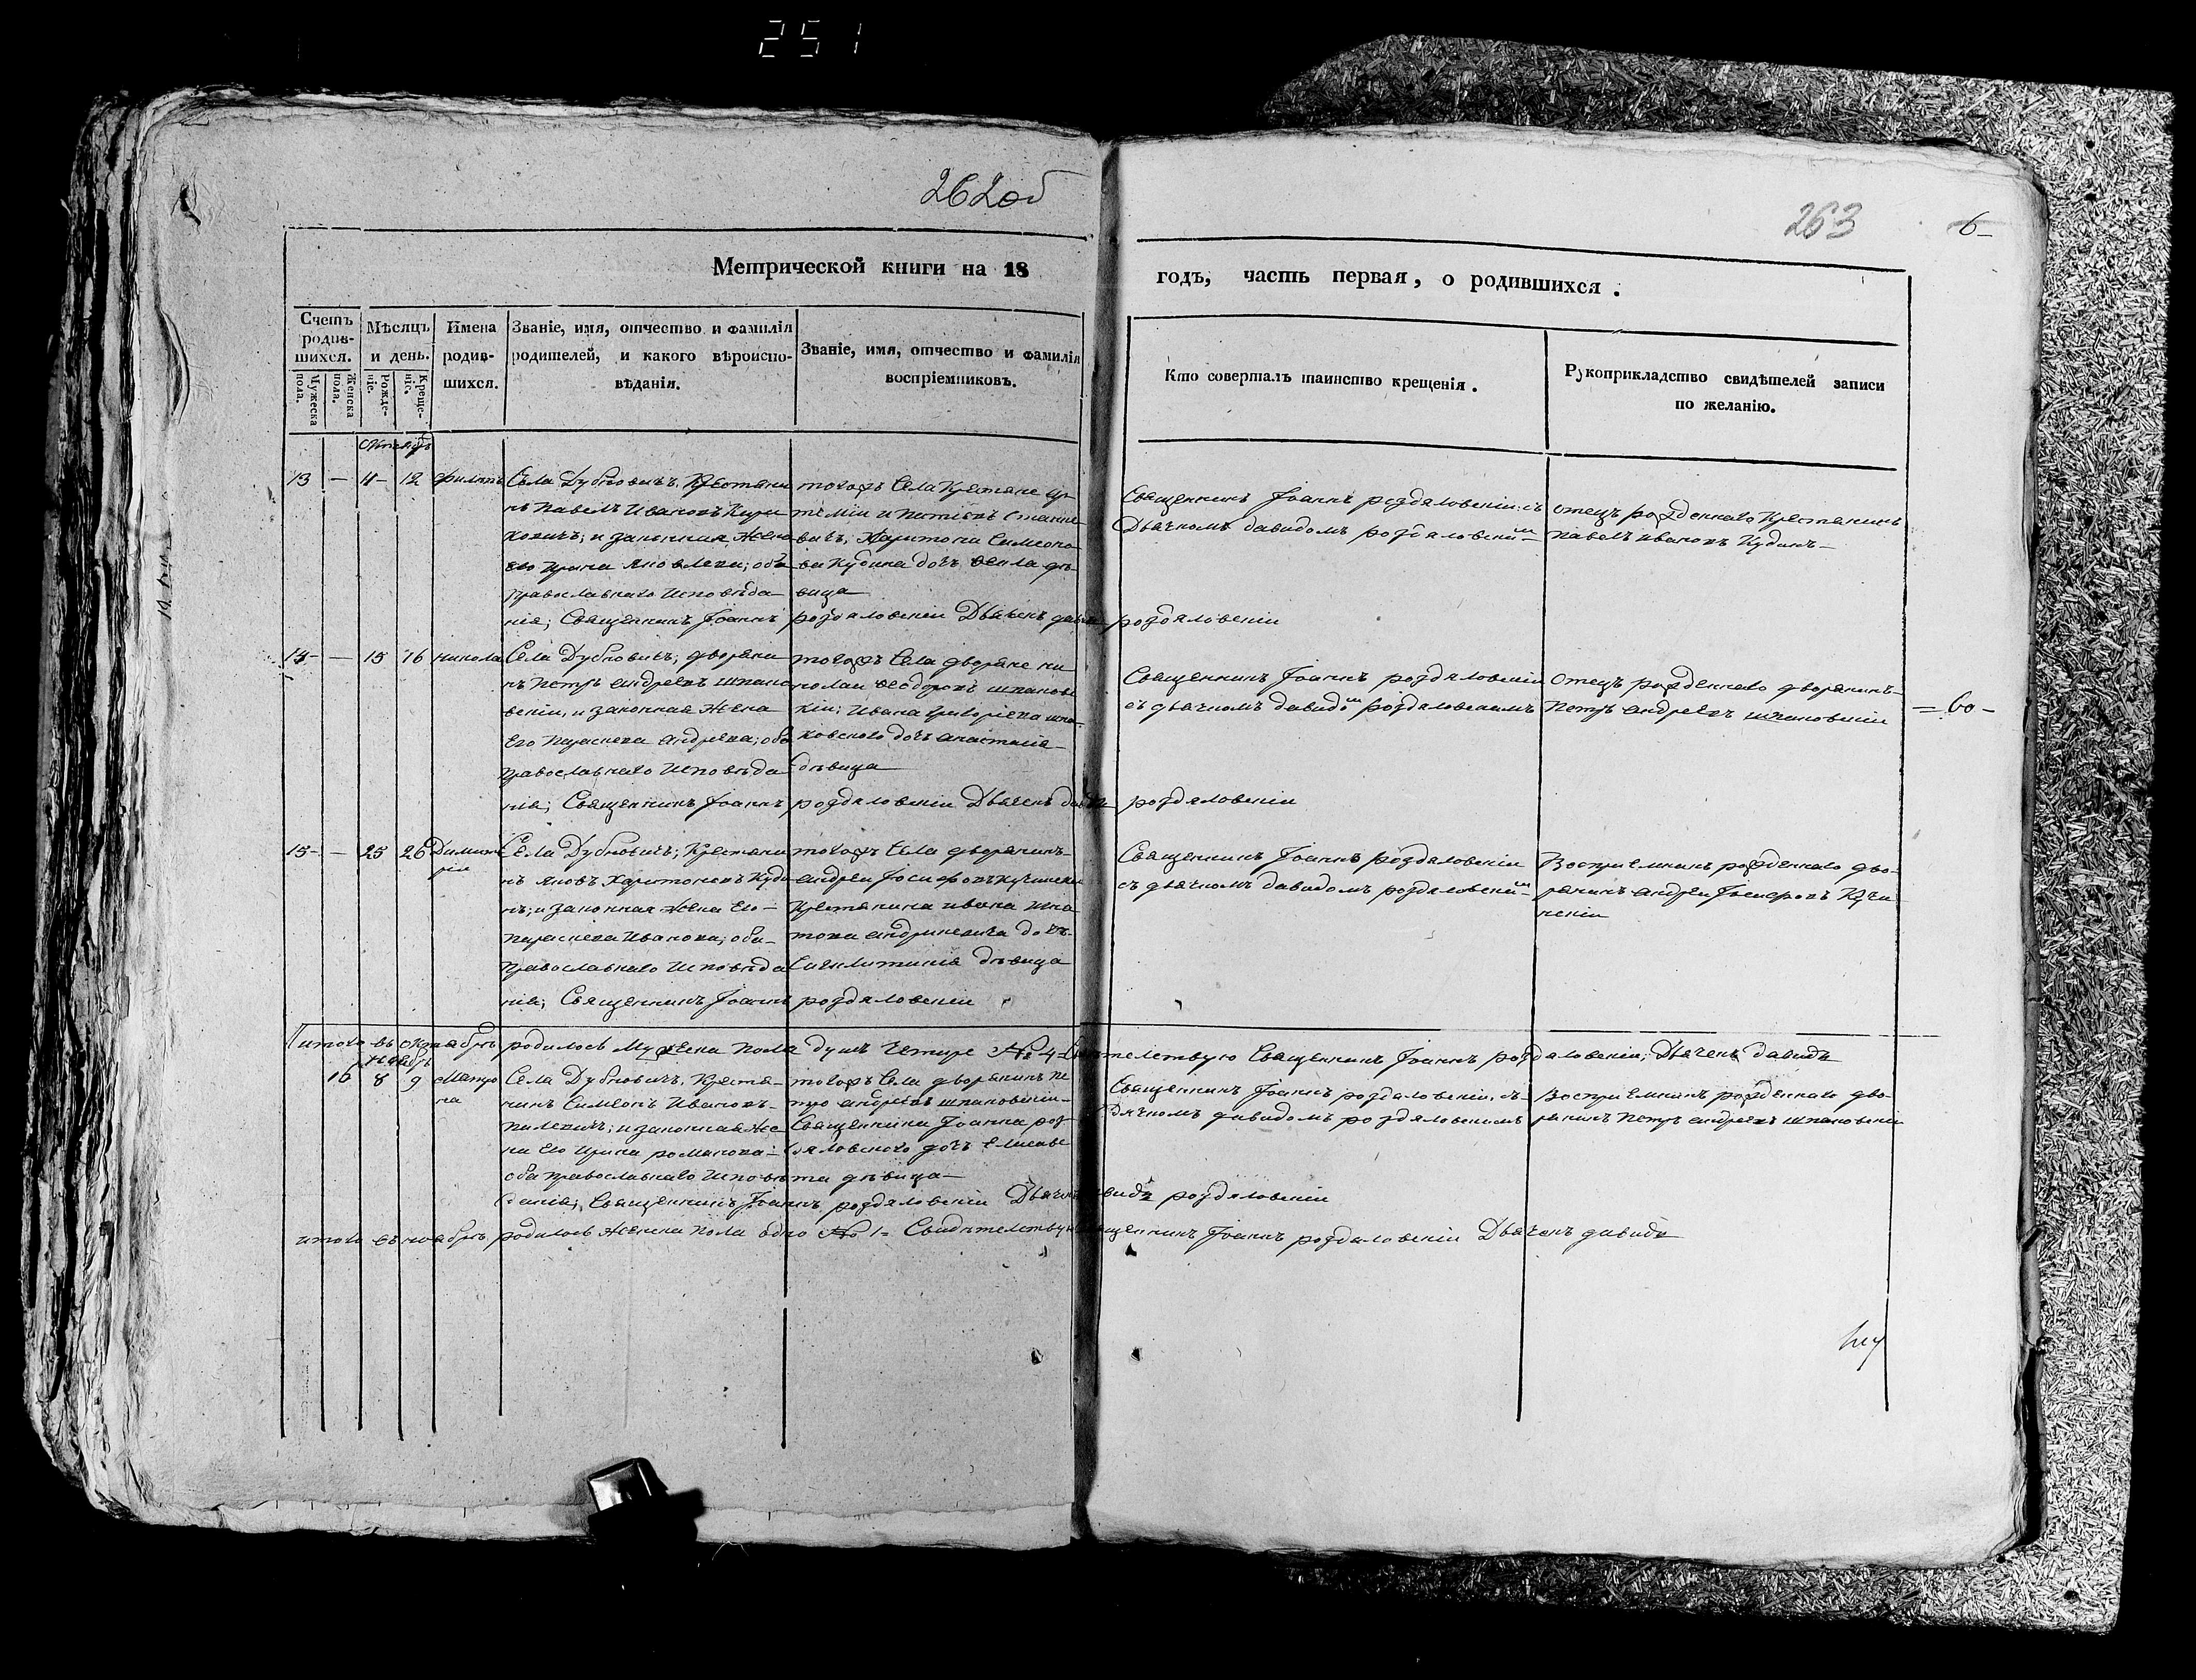 251
262об
263
6
Метрической книги на 18
годъ, часть первая, о родившихся.
Счетъ родив- шихся.
Мужеска пола.
Женска пола.
Мѣсяцъ и день.
Рожде- ніе.
Креще- ніе.
Имена родив- шихся.
Званіе, имя, отчество и фамилія
родителей, и какого вѣроиспо-
вѣданія.
Званіе, имя, отчество и фамилія
воспріемниковъ.
Кто совершалъ таинство крещенія.
Рукоприкладство свидѣтелей записи
по желанію.
13 — 11 12 Филипъ
Села Дубновичъ, Крестяни
нъ Павелъ Ивановъ
и законная жена
его Ирина Яковлева; оба
православнаго исповѣда
нія; Священникъ Іоаннъ роздяловскіи Дьячекъ давидъ роздяловскіи
тогожъ Села Крестяне Ар-
теміи и
Харитона Симеоно-
ва Кудина дочъ Фекла дѣ-
вица
Священникъ Іоаннъ роздяловскіи съ
Дьячкомъ давидомъ роздяловскимъ
отецъ рожденнаго Крестянинъ
павелъ ивановъ Кудинъ
14 — 15 16 никола
Села Дубновичъ; дворяни
нъ Петръ андреевъ шпако
вскіи, и законная жена
Его Параскева андреева; оба
православнаго исповѣда
нія; Священникъ Іоаннъ роздяловскіи Дьячекъ давидъ роздяловскіи
тогожъ Села дворяне ни
колаи Феодоровъ шпаковс
кіи; Ивана григоріева шпа-
ковского дочъ анастасія
дѣвица
Священникъ Іоаннъ роздяловскіи
съ дьячкомъ давидомъ роздяловскимъ
Отецъ рожденнаго дворянинъ
Петръ андреевъ шпаковскіи
= 60 -
15 — 25 26 Димит
ріи
Села Дубновичъ; Крестяни
нъ яковъ Харитоновъ Куди
нъ; и законная жена Его
параскева Иванова; оба
православнаго исповѣда
нія; Священникъ Іоаннъ роздяловскіи
тогожъ Села дворянинъ
андреи Іосифовъ
Крестянина ивана
дочъ
Сиклитикія дѣвица
Священникъ Іоаннъ роздяловскіи
съ дьячкомъ давидомъ роздяловскимъ
Воспріемникъ рожденнаго дво-
рянинъ андреи Іосифовъ
итого въ октябрѣ родилось мужеска пола душъ четире № 4 Свидѣтелствую Священникъ Іоаннъ роздяловскіи; Дьячекъ давидъ
Ноябрь
16 8 9 Матро
на
Села Дубновичъ, Крестя-
нинъ Симеонъ Ивановъ
и законная же
на Его Ирина романова
оба православнаго исповѣ
данія; Священникъ Іоаннъ роздяловскіи Дьячекъ давидъ роздяловскіи
тогожъ Села дворянинъ пе
тро андреевъ шпаковскіи
Священника Іоанна роз
дяловского дочъ Елисаве
та дѣвица
Священникъ Іоаннъ роздяловскіи съ
дячкомъ давидомъ роздяловскимъ
Воспріемникъ рожденнаго дво-
рянинъ Петръ андреевъ шпаковскіи
итого въ ноябрѣ родилось женска пола одно № 1 = Свидѣтелствую Священникъ Іоаннъ роздяловскіи Дьячекъ давидъ